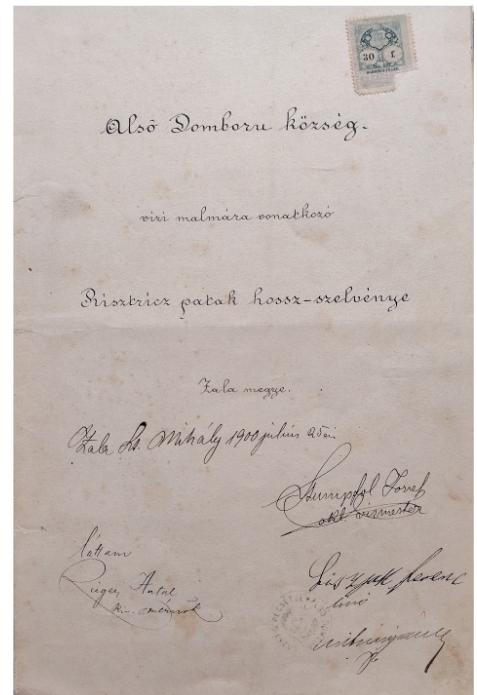 30 f.
Alsó Domboru község.
vizi malmára vonatkozó
Bisztricz patak hossz-szelvénye
Zala megye.
Zala Sz. Mihály 1900 július 25én
Stumpfol József
okl. vizmester
láttam
Antal
Ferenc